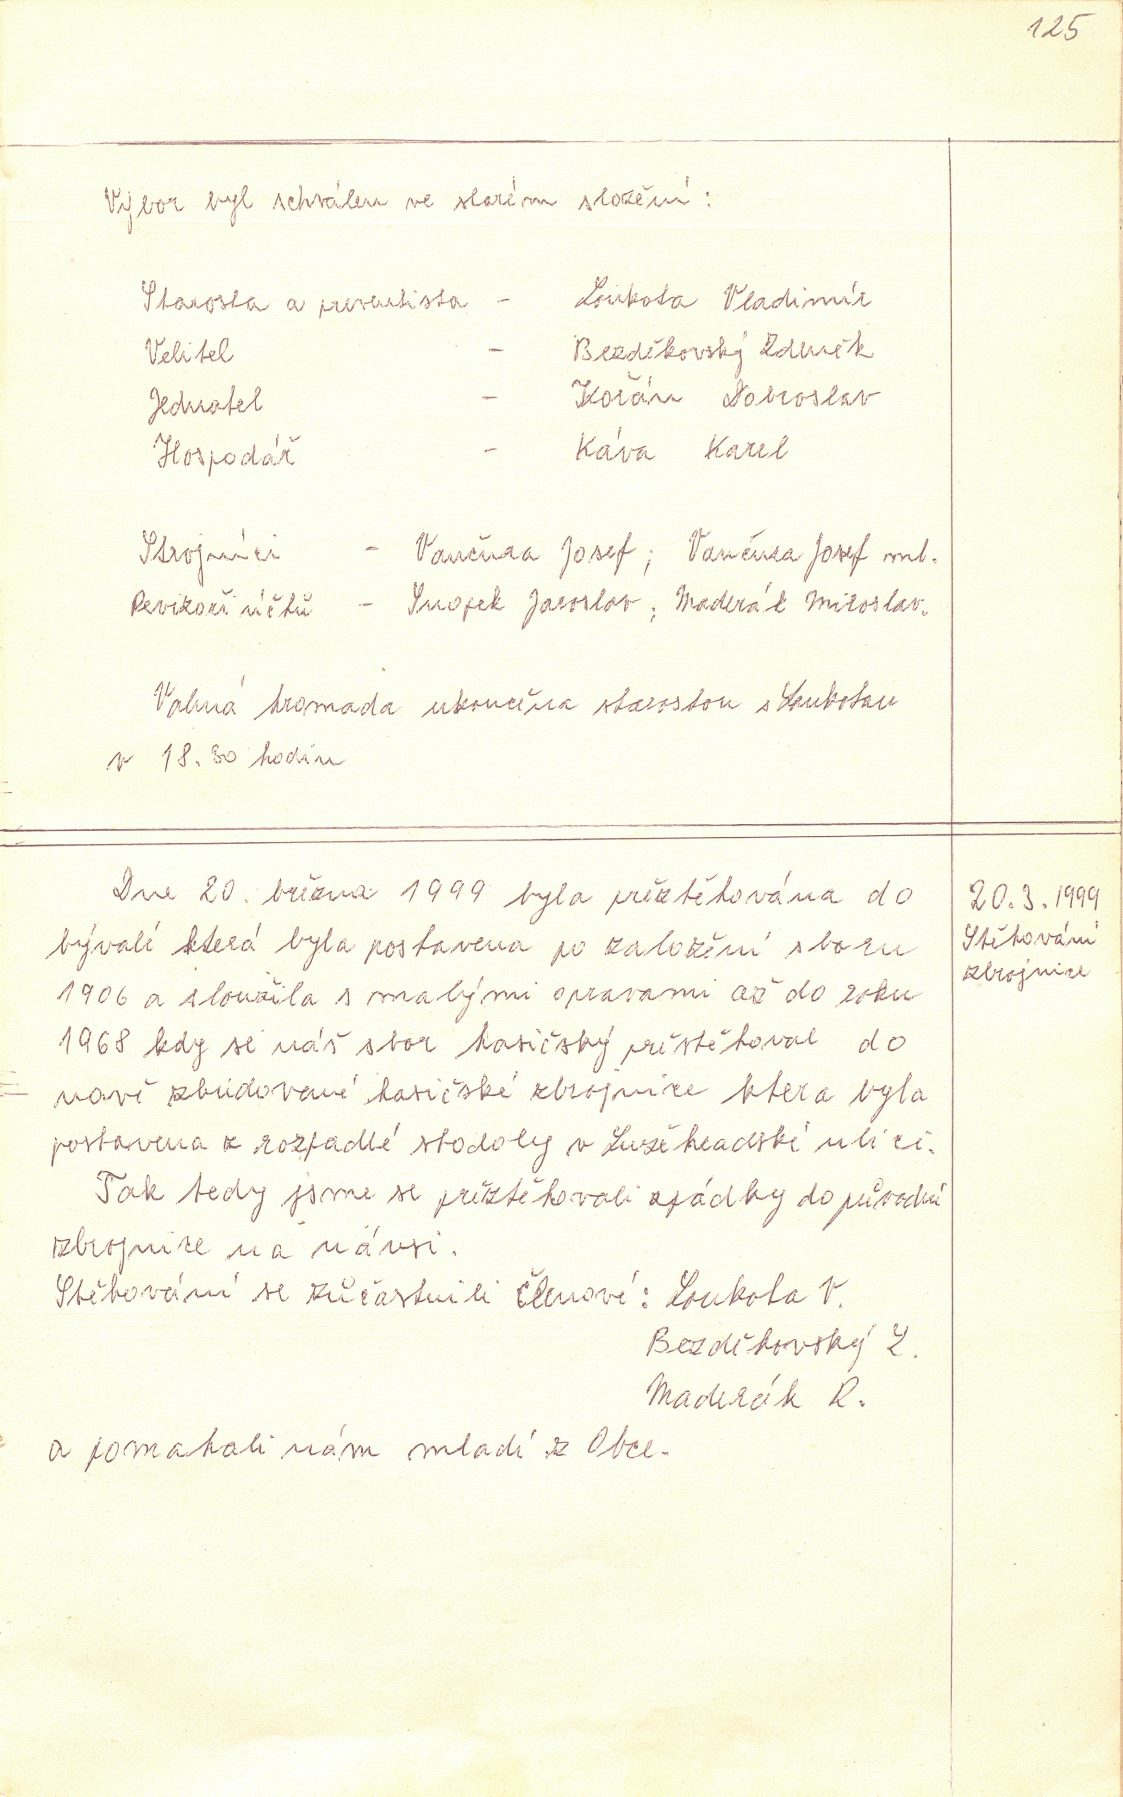 125
Výbor byl schválen ve starém složení:
Starosta a preventista - Loukota Vladimír
Velitel - Bezděkovský Zdeněk
Jednatel - Kořán Dobroslav
Hospodář - Káva Karel
Strojníci - Vančura Josef; Vančura Josef ml.
Revizoři účtů - Snopek Jaroslav; Maderák Miroslav.
Valná hromada ukončena starostou s Loukotou
v 18.30 hodin
Dne 20. března 1999 byla přeztěhována do
bývalí která byla postavena po založení sboru
1906 a sloužila s malými opravami až do roku
1968 kdy se náš sbor hasičský přestěhoval do
nově zbudované hasičské zbrojnice ktera byla
postavena z rozpadlé stodoly v ulici.
Tak tedy jsme se přeztěhovali zpádky do původní
zbrojnice na návsi.
Stěhování se zůčastnili členové: Loukota V.
Bezděkovský Z.
Maderák R.
a pomahali nám mladí z Obce.
20.3.1999
Stěhování
zbrojnice